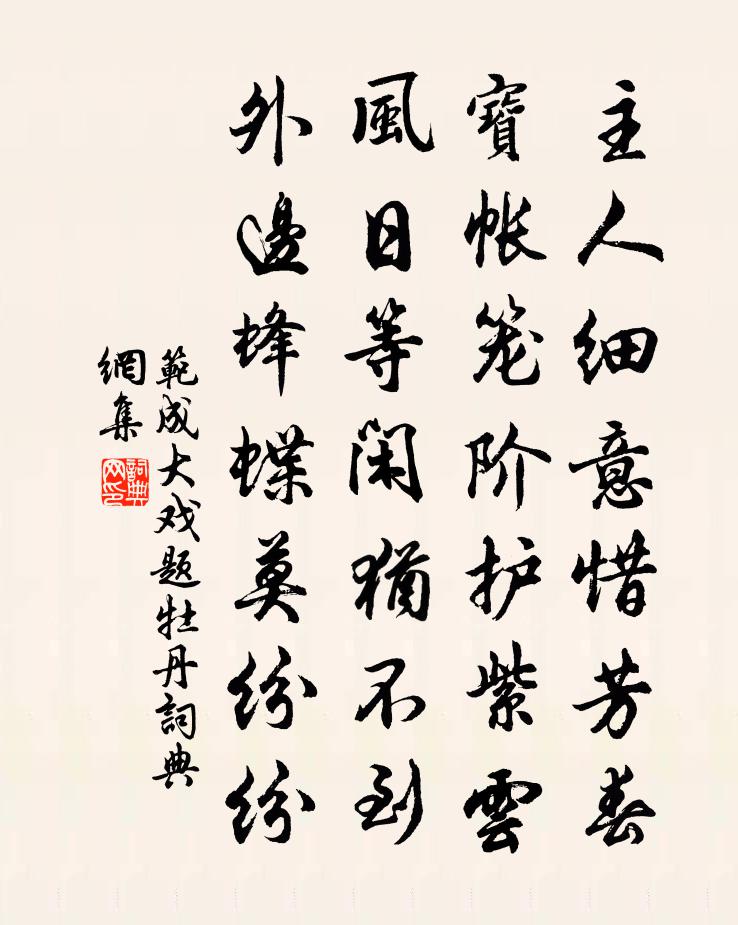 主人细意惜芳春
寳帐笼阶护紫雲
風日等閑猶不到
外邊蜂蝶莫纷纷
範成大戏题牡丹詞典
網集
詞典
网印